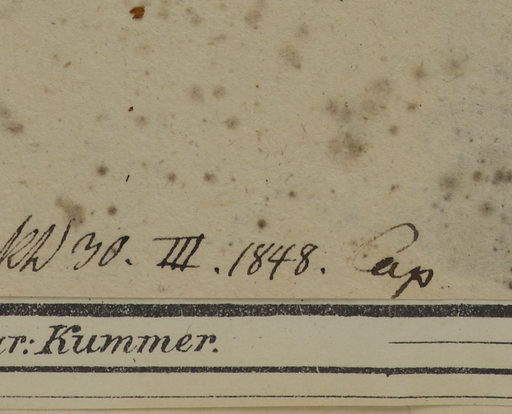 30. III. 1848. Cap
ar: Kummer.